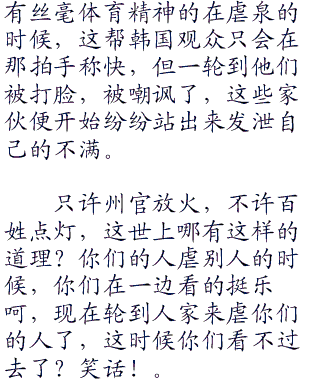 有丝毫体育精神的在虐泉的
时候，这帮韩国观众只会在
那拍手称快，但一轮到他们
被打脸，被嘲讽了，这些家
伙便开始纷纷站出来发泄自
己的不满。
只许州官放火，不许百
姓点灯，这世上哪有这样的
道理？你们的人虐别人的时
候，你们在一边看的挺乐
呵，现在轮到人家来虐你们
的人了，这时候你们看不过
去了？笑话！。